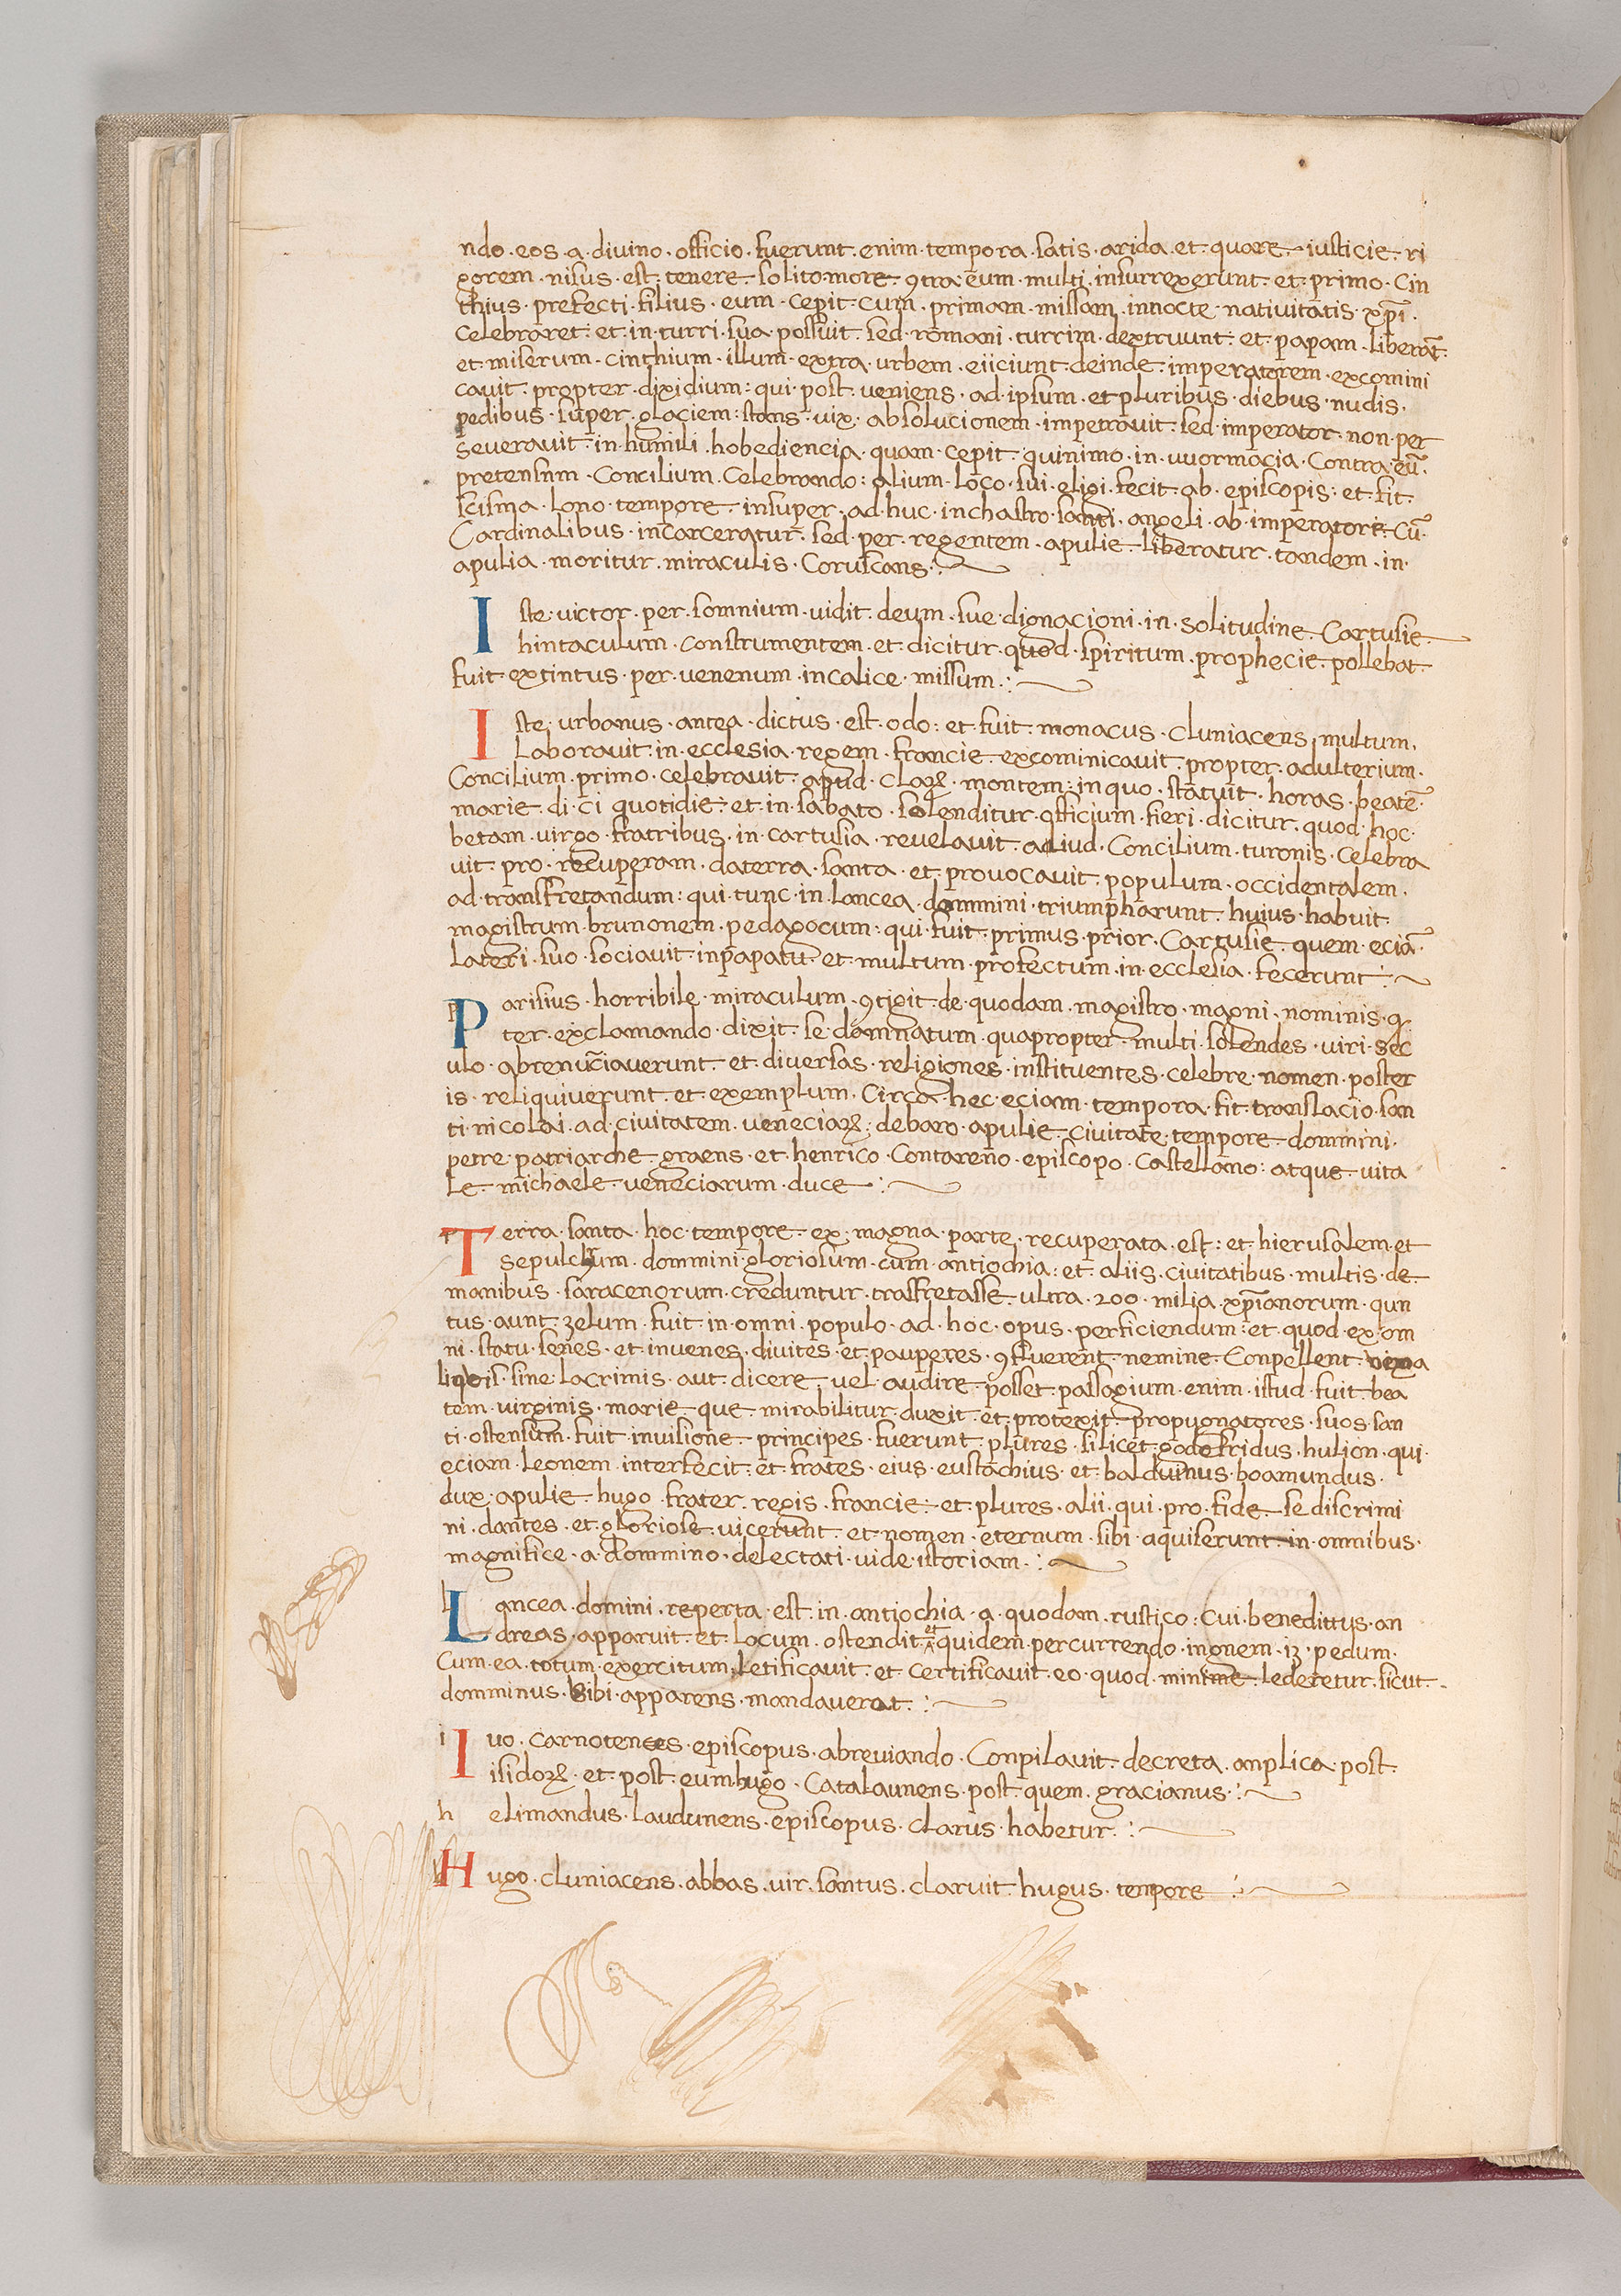 ndo · eos · a · divino · officio · fuerunt · enim · tempora · satis · arida · et · quare · iusticie · ri
gorem · nisus · est · tenere · solito more · 9tra · eum · multi · insurrexerunt · et · primo · Cin
thius · prefecti · filius · eum · cepit · cum · primam · missam · innocte · nativitatis · xp̄i ·
celebraret · et · in · turri · sua · possuit · sed · romani · turrim · dextruunt · et · papam · liberāt ·
et · miserum · cinthium · illum · extra · urbem · eiiciunt · deinde · imperatorem · excomini
cavit · propter · dixidium : qui · post · veniens · ad · ipsum · et pluribus · diebus · nudis ·
pedibus · super · glaciem : stans · vix · absolucionem · impetravit · sed · imperator · non · per
severavit · in · humili · hobediencia · quam · cepit · quinimo · in · vuormacia · Contra · eū ·
pretensum · Concilium · Celebrando : alium · loco · sui · eligi · fecit · ab · episcopis : et · fit ·
scisma · lono · tempore · insuper · ad · huc · inchastro · santi · angeli · ab · imperatore · cū ·
Cardinalibus · incarceratur · sed · per · regentem · apulie · liberatur · tandem · in ·
apulia · moritur · miraculis · Coruscans :
Iste · victor · per · somnium · vidit · deum · sue · dignacioni · in · solitudine · Cartusie
hintaculum · construmentem · et · dicitur · quod · spiritum · prophecie · pollebat ·
fuit · extintus · per · venenum · incalice · missum :
Iste · urbanus · antea · dictus · est · odo : et · fuit · monacus · cluniacens · multum ·
Laboravit · in · ecclesia · regem · francie · excominicavit · propter · adulterium ·
Concilium · primo · celebravit · apud · claꝝ · montem : in quo · statuit · horas · beatē ·
marie · di · ci · quotidie · et · in · sabato · solenditur · officium · fieri · dicitur · quod · hoc ·
betam · virgo · fratribus · in · cartusia · revelavit · aliud · Concilium · turonis · celebra
vit · pro · recuperam · daterra · santa · et · provocavit · populum · occidentalem ·
ad · transfretandum : qui · tunc · in · lancea · dommini · triumpharunt · huius · habuit
magistrum · brunonem · pedagocum : qui · fuit · primus · prior · Cartusie · quem · eciā ·
Lateri · suo · sociavit · inpapatu · et · multum · profectum · in · ecclesia · fecerunt :
Parisius · horribile · miraculum · 9tigit · de · quodam · magistro · magni · nominis · q
ter · exclamando · dixit · se · damnatum · quapropter · multi · solendes · viri · sec
ulo · abrenunciaverunt · et · diversas · religiones · instituentes · celebre · nomen · poster
is · reliquiverunt · et · exemplum · Circa · hec · eciam · tempora · fit · translacio · san
ti · nicolai · ad · civitatem · veneciaꝝ : debaro · apulie · civitate · tempore · dommini ·
petre · patriarche · graens · et · henrico · Contareno · episcopo · Castellano : atque · vita
le · michaele · veneciarum · duce :
Terra · santa · hoc · tempore · ex · magna · parte · recuperata · est : et · hierusalem · et
sepulchrum · dommini · gloriosum · cum · antiochia : et · aliis · civitatibus · multis · de
manibus · saracenorum · creduntur · trasfretasse · ultra · 200 · milia · xp̄ianorum · qun
tus · aunt · zelum · fuit · in · omni · populo · ad · hoc · opus · perficiendum : et · quod · ex · om
ni · statu · senes · et · invenes · divites · et · pauperes · 9fluerent · nemine · Conpellent ·
sine · lacrimis · aut · dicere · vel · audire · posset · passagium · enim · istud · fuit · bea
tem · virginis · marie · que · mirabilitur · duxit · et · protexit · propugnatores · suos · san
ti · ostensum · fuit · invisione · principes · fuerunt · plures · silicet · godefridus · hulion · qui ·
eciam · leonem · interfecit · et · frates · eius · eustachius · et · balduinus · boamundus ·
dux · apulie · hugo · frater · regis · francie · et · plures · alii · qui · pro · fide · se · discrimi
ni · dantes · et · gloriose · vicerunt · et · nomen · eternum · sibi · aquiserunt · in · omnibus ·
magnifice · a · dommino · delectati · vide · istoriam :
Lancea · domini · reperta · est · in · antiochia · a · quodam · rustico : cui · benedittus · an
dreas · apparvit · et · locum · ostendit · et quidem · percurrendo · in onem · 13 · pedum ·
Cum · ea · totum · exercitum · letificavit · et · certificavit · eo · quod · minime · lederetur · sicut ·
domminus · sibi · apparens · mandaverat :
i Ivo · carnotenses · episcopus · abreviando · Conpilavit · decreta · anplica · post ·
isidoꝝ · et · post · eum hugo · Catalaunens · post · quem · gracianus :
h elimandus · laudunens · episcopus · clarus · habetur :
Hugo · cluniacens · abbas · vir · santus · claruit · hugus · tempore :